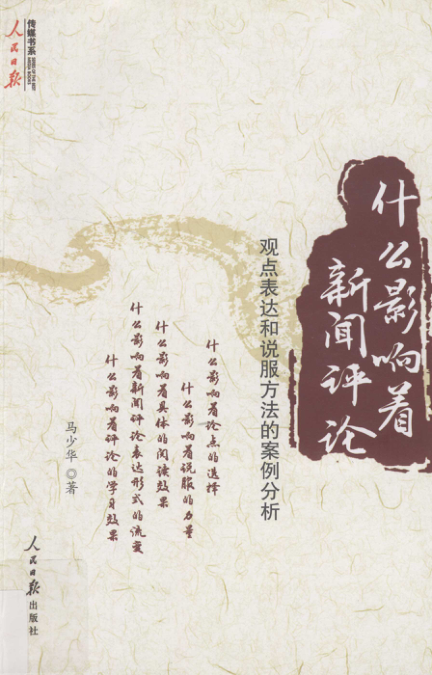 人民日报
传媒书系
什么影响着
新闻评论
观点表达和说服方法的案例分析
什么影响着论点的选择
什么影响着说服的力量
什么影响着具体的阅读效果
什么影响着新闻评论表达形式的流变
什么影响着评论的学习效果
马少华◎著
人民日报出版社